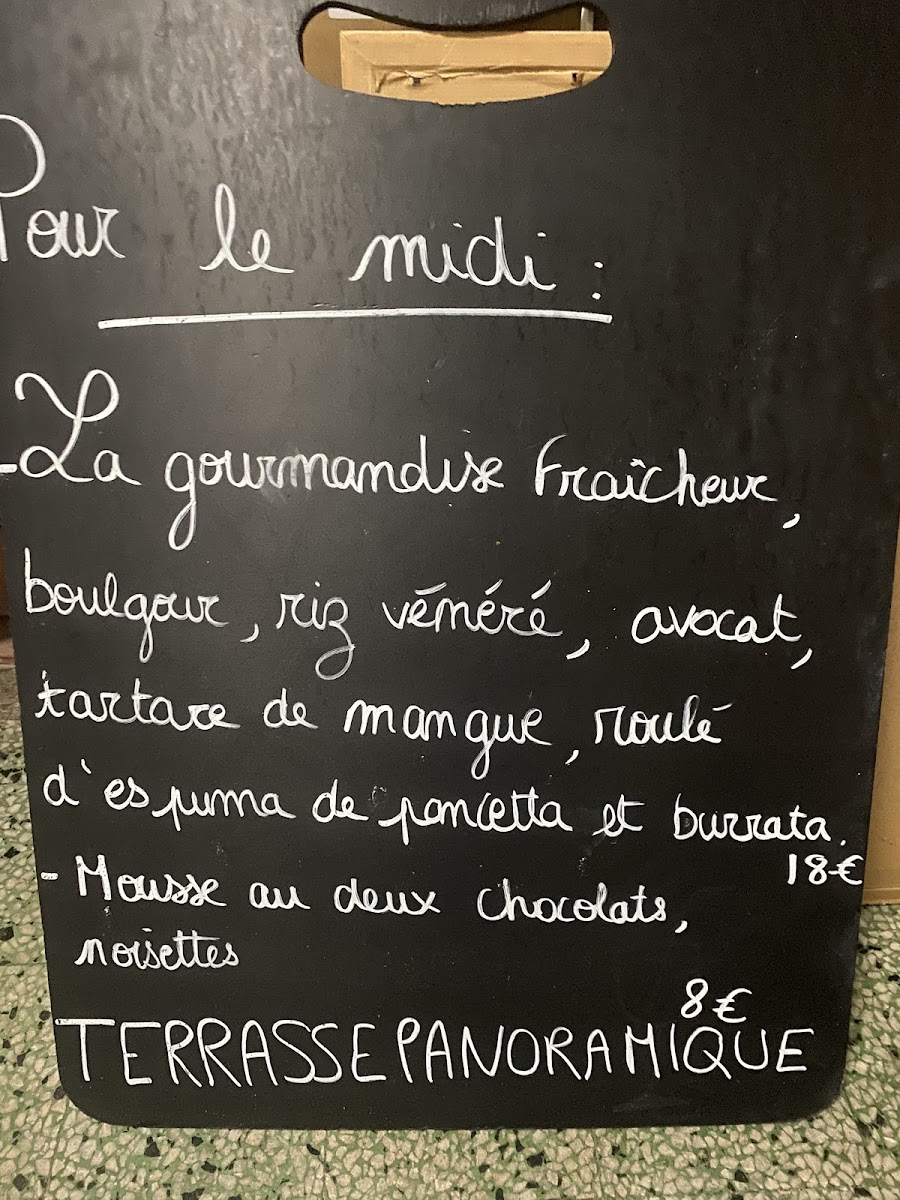 Pour le midi :
- La gourmandise Fraîcheur,
boulgour, riz vénéré, avocat,
tartare de mangue, roulé
d'espuma de pancetta et burrata.
18€
- Mousse au deux chocolats,
noisettes
8€
TERRASSE PANORAMIQUE